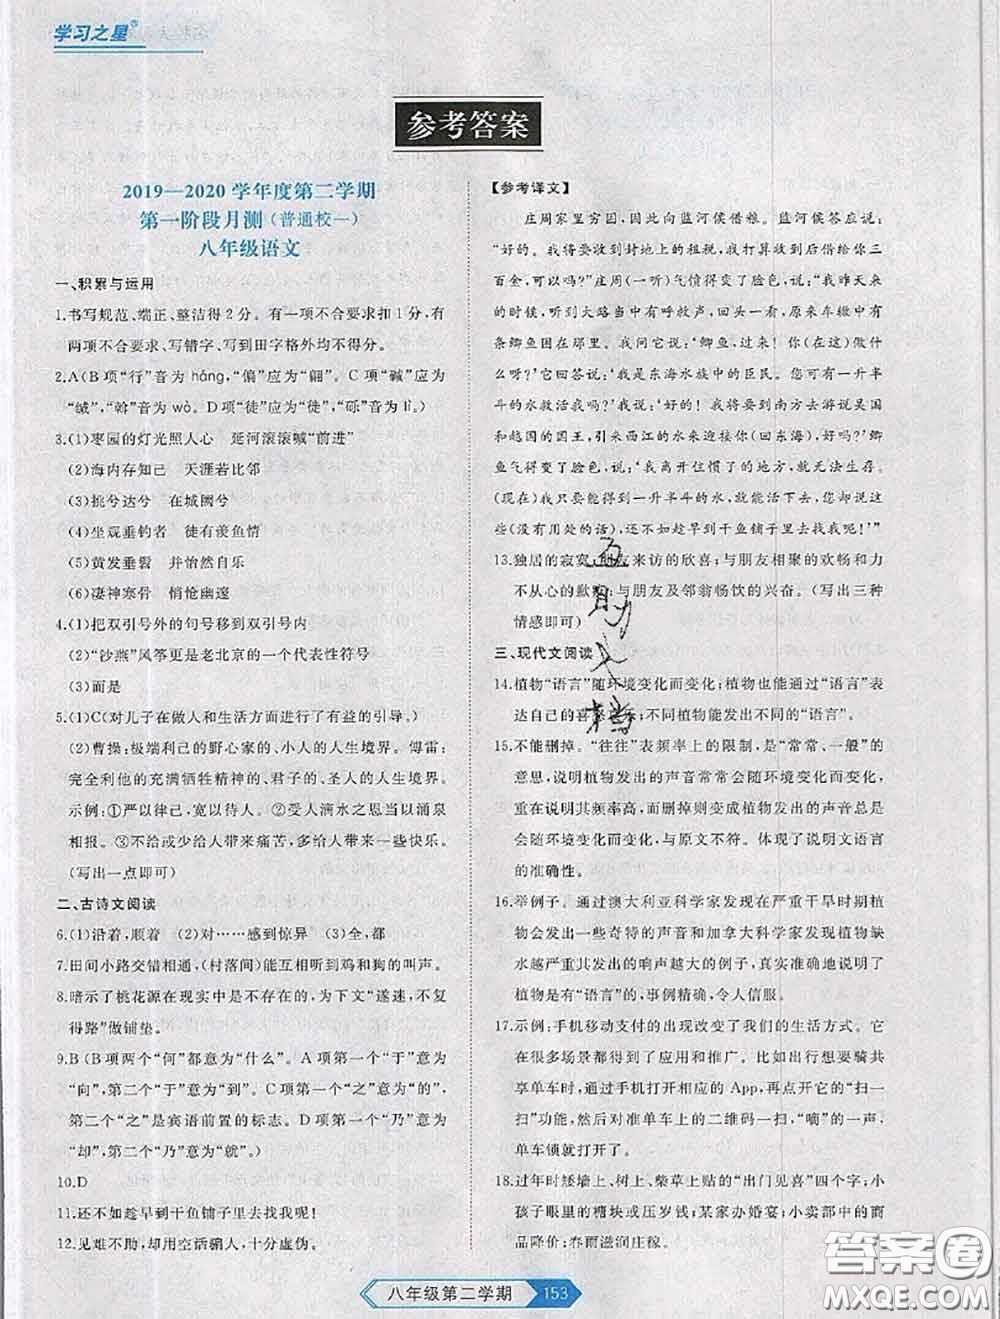 学习之星®
参考答案
2019—2020学年度第二学期
第一阶段月测(普通校一)
八年级语文
一、积累与运用
1.书写规范、端正、整洁得2分。有一项不合要求扣1分,有
两项不合要求、写错字、写到田字格外均不得分。
2.A(B项“行”音为háng,“偏”应为“翩”。C项“碱”应为
“缄”,“斡”音为wò。D项“徒”应为“徙”,“砾”音为lì。)
3.(1)枣园的灯光照人心 延河滚滚喊“前进”
(2)海内存知己 天涯若比邻
(3)挑兮达兮 在城阙兮
(4)坐观垂钓者 徒有羡鱼情
(5)黄发垂髫 并怡然自乐
(6)凄神寒骨 悄怆幽邃
4.(1)把双引号外的句号移到双引号内
(2)“沙燕”风筝更是老北京的一个代表性符号
(3)而是
5.(1)C(对儿子在做人和生活方面进行了有益的引导。)
(2)曹操:极端利己的野心家的、小人的人生境界。傅雷:
完全利他的充满牺牲精神的、君子的、圣人的人生境界。
示例:①严以律己,宽以待人。②受人滴水之恩当以涌泉
相报。③不给或少给人带来痛苦,多给人带来幸福。
(写出一点即可)
二、古诗文阅读
6.(1)沿着,顺着 (2)对……感到惊异 (3)全,都
7.田间小路交错相通,(村落间)能互相听到鸡和狗的叫声。
8.暗示了桃花源在现实中是不存在的,为下文“遂迷,不复
得路”做铺垫。
9.B(B项两个“何”都意为“什么”。A项第一个“于”意为
“向”,第二个“于”意为“到”。C项第一个“之”意为“的”,
第二个“之”是宾语前置的标志。D项第一个“乃”意为
“却”,第二个“乃”意为“就”。)
10.D
11.还不如趁早到干鱼铺子里去找我呢!
12.见难不助,却用空话骗人,十分虚伪。
【参考译文】
庄周家里穷困,因此向监河侯借粮。监河侯答应说:
“好的。我将要收到封地上的租税,我打算收到后借给你三
百余金,可以吗?”庄周(一听)气愤得变了脸色,说:“我昨天来
的时候,听到大路当中有呼救声,回头一看,原来车辙中有
条鲫鱼困在那里。我问它说:‘鲫鱼,过来!你(在这)做什
么呀?’它回答说:‘我是东海水族中的臣民。您可有一升半
斗的水救活我吗?’我说:‘好的!我将要到南方去游说吴国
和越国的国王,引来西江的水来迎接你(回东海),可以吗?’鲫
鱼气得变了脸色,说:‘我离开住惯了的地方,就无法生存。
(现在)我只要能得到一升半斗的水,就能活下去,您却说
些(没有用处的话),还不如趁早到干鱼铺子里去找我呢!’”
13.独居的寂寞;朋友来访的欣喜;与朋友相聚的欢畅和力
不从心的歉歉;与朋友及邻翁畅饮的兴奋。(写出三种
情感即可)
三、现代文阅读
14.植物“语言”随环境变化而变化;植物也能通过“语言”表
达自己的喜怒哀乐;不同植物能发出不同的“语言”。
15.不能删掉。“往往”表频率上的限制,是“常常、一般”的
意思,说明植物发出的声音常常会随环境变化而变化,
重在说明其频率高,而删掉则变成植物发出的声音总是
会随环境变化而变化,与原文不符。体现了说明文语言
的准确性。
16.举例子。通过澳大利亚科学家发现在严重干旱时期植物
会发出一些奇特的声音和加拿大科学家发现植物缺
水越严重其发出的响声越大的例子,具体真实地说明了
植物是有“语言”的,事例精确,令人信服。
17.示例:手机移动支付的出现改变了我们的生活方式。它
在很多场景都得到了应用和推广。比如出行想要骑共
享单车时,通过手机打开相应的App,再点开它的“扫一
扫”功能,然后对准单车上的二维码一扫,“嘀”的一声,
单车锁就打开了。
18.过年时矮墙上、树上、柴草上贴的“出门见喜”四个字;小
孩子眼里的糖块或压岁钱;某家办婚宴;小卖部中的商
品降价;春雨滋润庄稼。
互助文档
八年级第二学期 153
答案圈
MXQE.COM